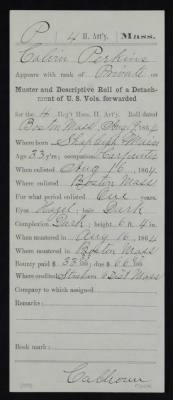 P | 4 H. Art'y. | Mass.
Calvin Perkins
Appears with rank of Private on
Muster and Descriptive Roll of a Detach-
ment of U. S. Vols. forwarded
for the 4 Reg't Hea. Art'y. Roll dated
Boston Mass Aug 1864
Where born Shapleigh Maine
Age 33 y'rs; occupation Carpenter
When enlisted Aug 16, 1864
Where enlisted Boston Mass
For what period enlisted One years.
Eyes Hazel; hair Dark
Complexion Dark; height 6 ft. 4 in.
When mustered in Aug 16, 1864
Where mustered in Boston Mass
Bounty paid $ 33 100; due $ 66 100
Where credited 6 Dist Mass
Company to which assigned
Remarks:
Book mark:
Calhoun